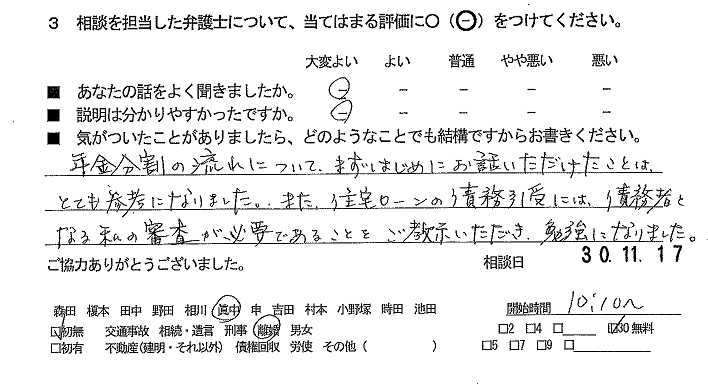 3 相談を担当した弁護士について、当てはまる評価に○(⊖)をつけてください。
大変よい よい 普通 やや悪い 悪い
■ あなたの話をよく聞きましたか。 － － － － －
■ 説明は分かりやすかったですか。 － － － － －
■ 気がついたことがありましたら、どのようなことでも結構ですからお書きください。
年金分割の流れについて、まずはじめにお話いただけたことは、
とても参考になりました。また、住宅ローンの債務引受には、債務者と
なる私の審査が必要であることをご教示いただき、勉強になりました。
ご協力ありがとうございました。 相談日 30.11.17
森田 榎本 田中 野田 相川 眞中 申 吉田 村本 小野塚 時田 池田 開始時間 10:10〜
☑初無 交通事故 相続・遺言 刑事 離婚 男女 □2 □4 □____ ☑30 無料
□初有 不動産(建明・それ以外) 債権回収 労使 その他( ) □5 □7 □9 □____